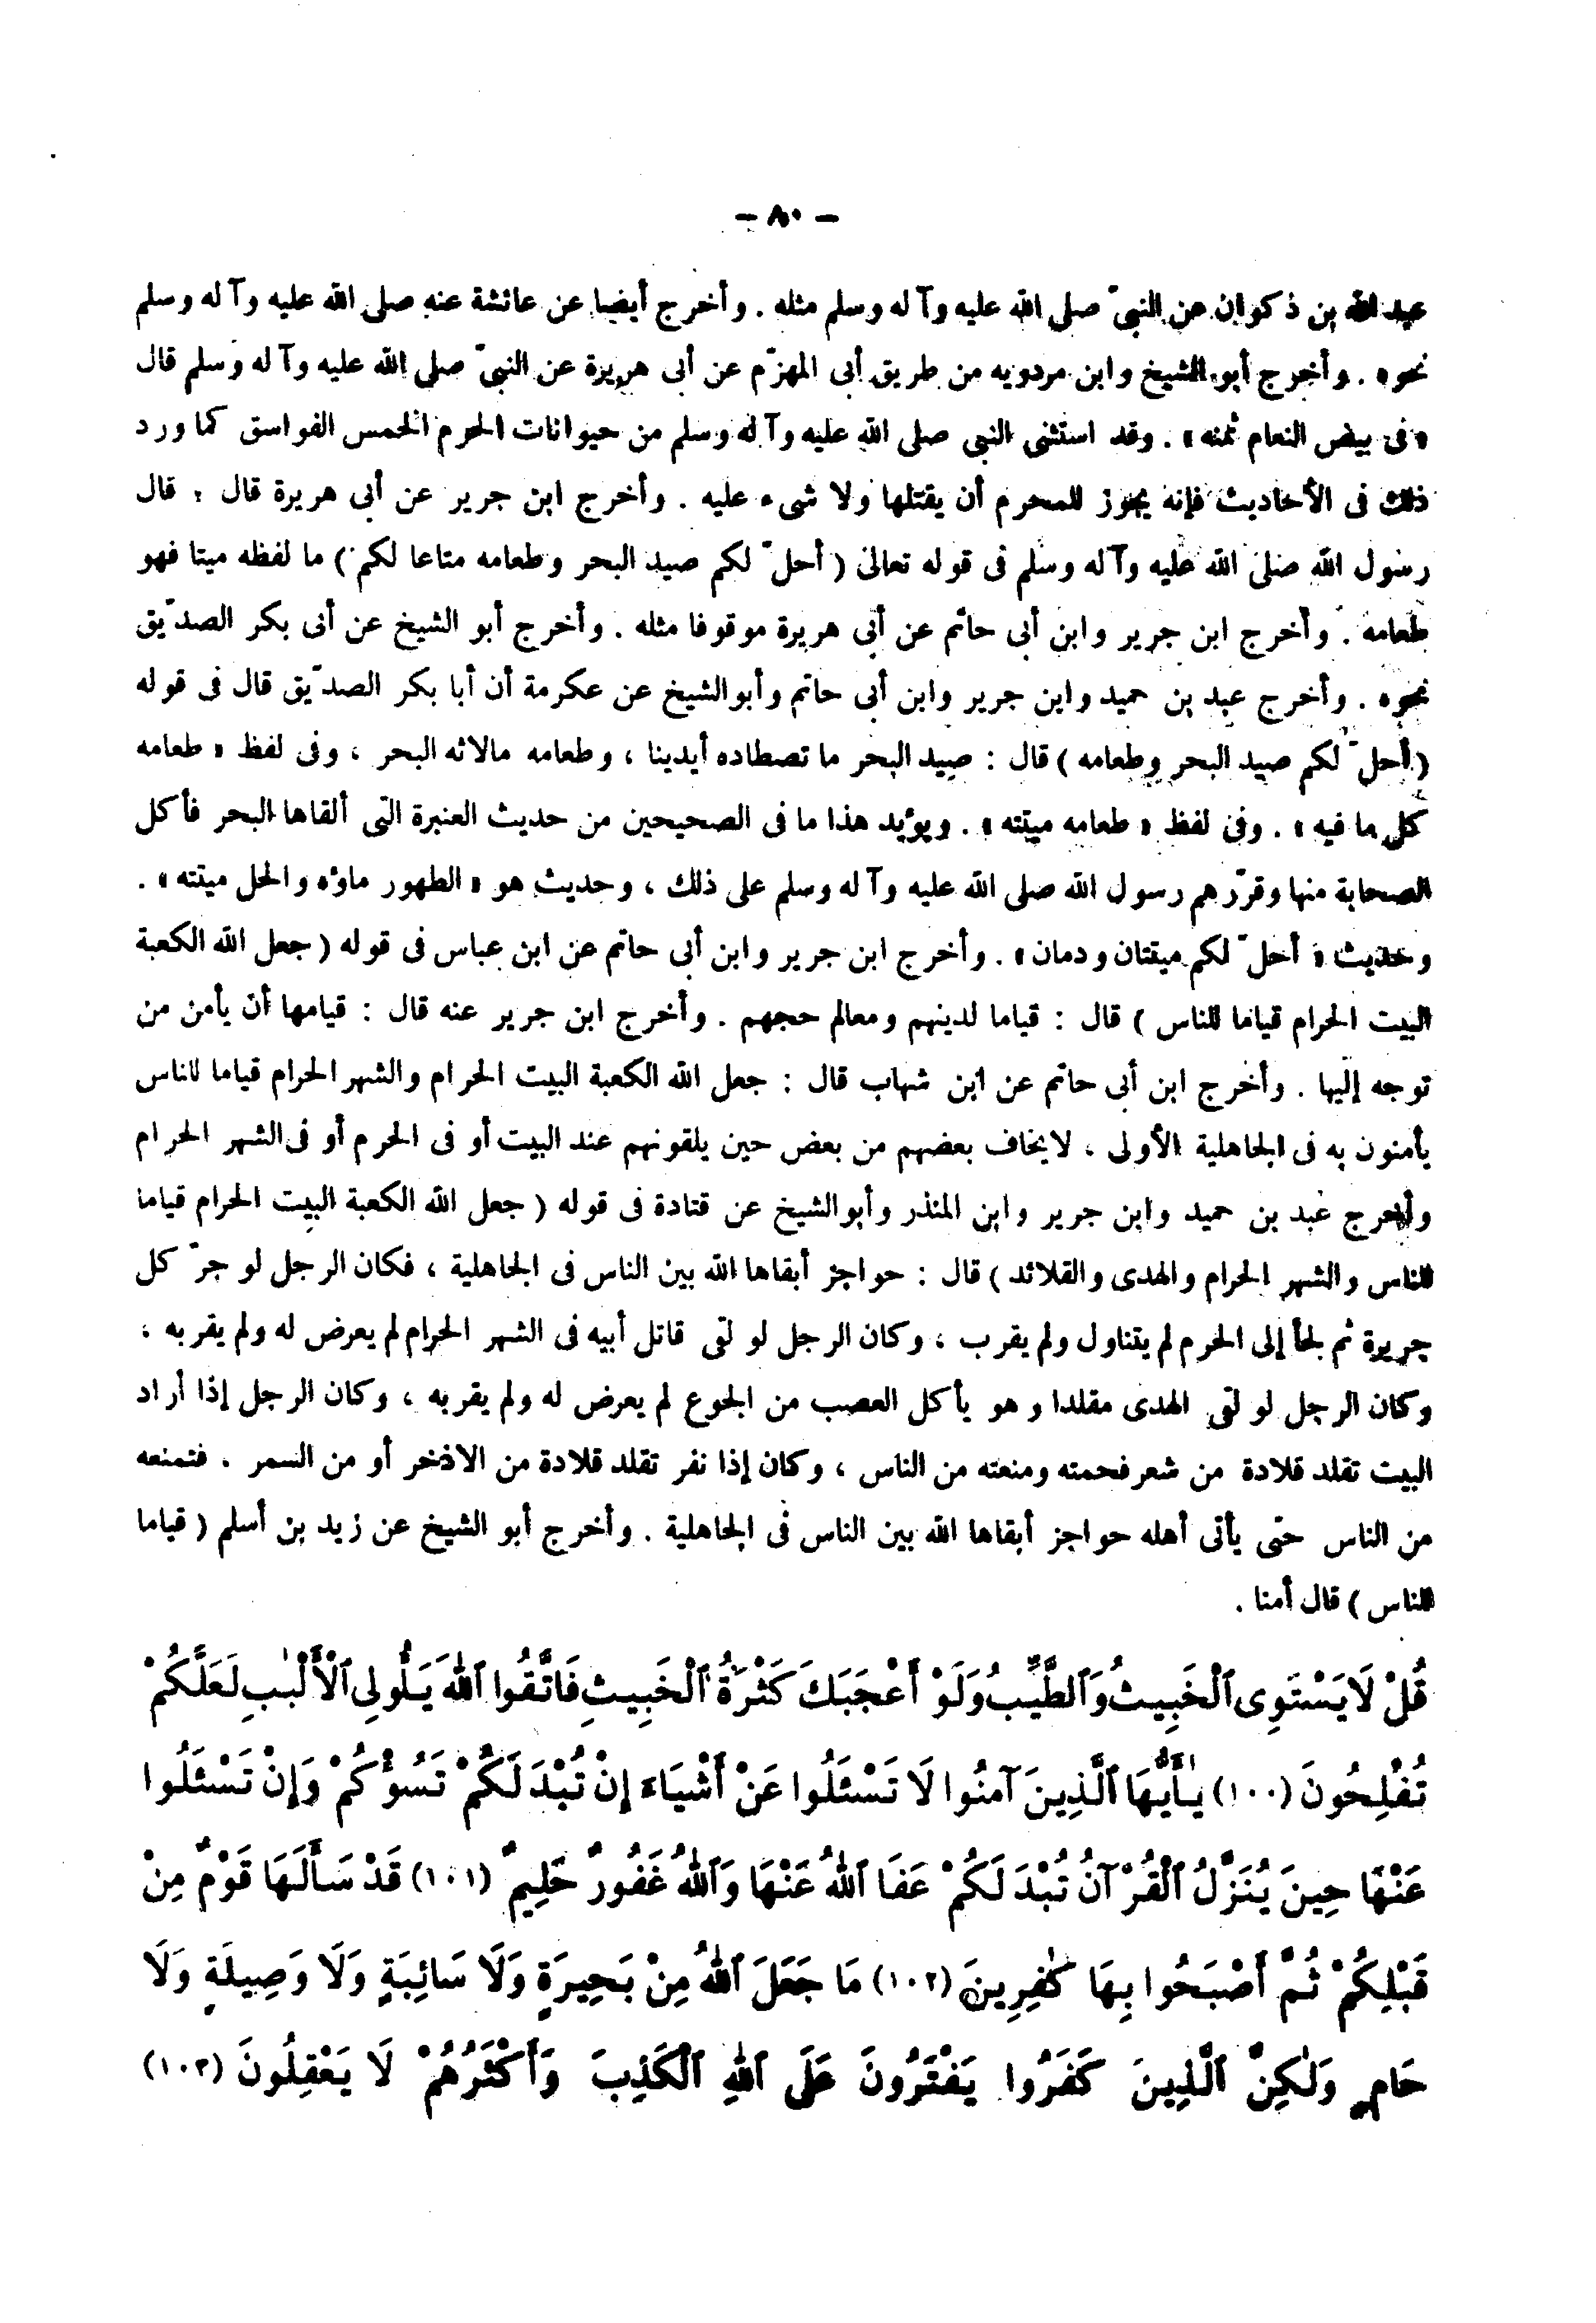 - ٨٠ -
عبد الله بن ذكوان عن النبيّ صلى الله عليه وآله وسلم مثله . وأخرج أيضا عن عائشة عنه صلى الله عليه وآله وسلم
نحوه . وأخرج أبو الشيخ وابن مردويه من طريق أبى المهزّم عن أبى هريرة عن النبيّ صلى الله عليه وآله وسلم قال
« فى بيض النعام ثمنه » . وقد استثنى النبى صلى الله عليه وآله وسلم من حيوانات الحرم الخمس الفواسق كما ورد
ذلك فى الأحاديث فإنه يجوز للمحرم أن يقتلها ولا شىء عليه . وأخرج ابن جرير عن أبى هريرة قال : قال
رسول الله صلى الله عليه وآله وسلم فى قوله تعالى ( أحلّ لكم صيد البحر وطعامه متاعا لكم ) ما لفظه ميتا فهو
طعامه . وأخرج ابن جرير وابن أبى حاتم عن أبى هريرة موقوفا مثله . وأخرج أبو الشيخ عن أبى بكر الصدّيق
نحوه . وأخرج عبد بن حميد وابن جرير وابن أبى حاتم وأبو الشيخ عن عكرمة أن أبا بكر الصدّيق قال فى قوله
( أحلّ لكم صيد البحر وطعامه ) قال : صيد البحر ما تصطاده أيدينا ، وطعامه مالاثه البحر ، وفى لفظ « طعامه
كل ما فيه » . وفى لفظ « طعامه ميتته » . ويؤيد هذا ما فى الصحيحين من حديث العنبرة التى ألقاها البحر فأكل
الصحابة منها وقرّرهم رسول الله صلى الله عليه وآله وسلم على ذلك ، وحديث هو « الطهور ماؤه والحل ميتته » .
وحديث « أحلّ لكم ميتتان ودمان » . وأخرج ابن جرير وابن أبى حاتم عن ابن عباس فى قوله ( جعل الله الكعبة
البيت الحرام قياما للناس ) قال : قياما لدينهم ومعالم حجهم . وأخرج ابن جرير عنه قال : قيامها أن يأمن من
توجه إليها . وأخرج ابن أبى حاتم عن ابن شهاب قال : جعل الله الكعبة البيت الحرام والشهر الحرام قياما للناس
يأمنون به فى الجاهلية الأولى ، لايخاف بعضهم من بعض حين يلقونهم عند البيت أو فى الحرم أو فى الشهر الحرام
وأخرج عبد بن حميد وابن جرير وابن المنذر وأبو الشيخ عن قتادة فى قوله ( جعل الله الكعبة البيت الحرام قياما
للناس والشهر الحرام والهدى والقلائد ) قال : حواجز أبقاها الله بين الناس فى الجاهلية ، فكان الرجل لو جرّ كل
جريرة ثم لجأ إلى الحرم لم يتناول ولم يقرب ، وكان الرجل لو لقى قاتل أبيه فى الشهر الحرام لم يعرض له ولم يقربه ،
وكان الرجل لو لقى الهدى مقلدا وهو يأكل العصب من الجوع لم يعرض له ولم يقربه ، وكان الرجل إذا أراد
البيت تقلد قلادة من شعر فحمته ومنعته من الناس ، وكان إذا نفر تقلد قلادة من الاذخر أو من السمر . فتمنعه
من الناس حتى يأتى أهله حواجز أبقاها الله بين الناس فى الجاهلية . وأخرج أبو الشيخ عن زيد بن أسلم ( قياما
للناس ) قال أمنا .
قُلْ لَا يَسْتَوِى ٱلْخَبِيثُ وَٱلطَّيِّبُ وَلَوْ أَعْجَبَكَ كَثْرَةُ ٱلْخَبِيثِ فَاتَّقُوا ٱللهَ يَـٰأُولِى ٱلْأَلْبَٰبِ لَعَلَّكُمْ
تُفْلِحُونَ (١٠٠) يَـٰأَيُّهَا ٱلَّذِينَ آمَنُوا لَا تَسْئَلُوا عَنْ أَشْيَاءَ إِنْ تُبْدَ لَكُمْ تَسُؤْكُمْ وَإِنْ تَسْئَلُوا
عَنْهَا حِينَ يُنَزَّلُ ٱلْقُرْآنُ تُبْدَ لَكُمْ عَفَا ٱللهُ عَنْهَا وَٱللهُ غَفُورٌ حَلِيمٌ (١٠١) قَدْ سَأَلَهَا قَوْمٌ مِنْ
قَبْلِكُمْ ثُمَّ أَصْبَحُوا بِهَا كَٰفِرِينَ (١٠٢) مَا جَعَلَ ٱللهُ مِنْ بَحِيرَةٍ وَلَا سَائِبَةٍ وَلَا وَصِيلَةٍ وَلَا
حَامٍ وَلَٰكِنَّ ٱلَّذِينَ كَفَرُوا يَفْتَرُونَ عَلَى ٱللهِ ٱلْكَذِبَ وَأَكْثَرُهُمْ لَا يَعْقِلُونَ (١٠٣)